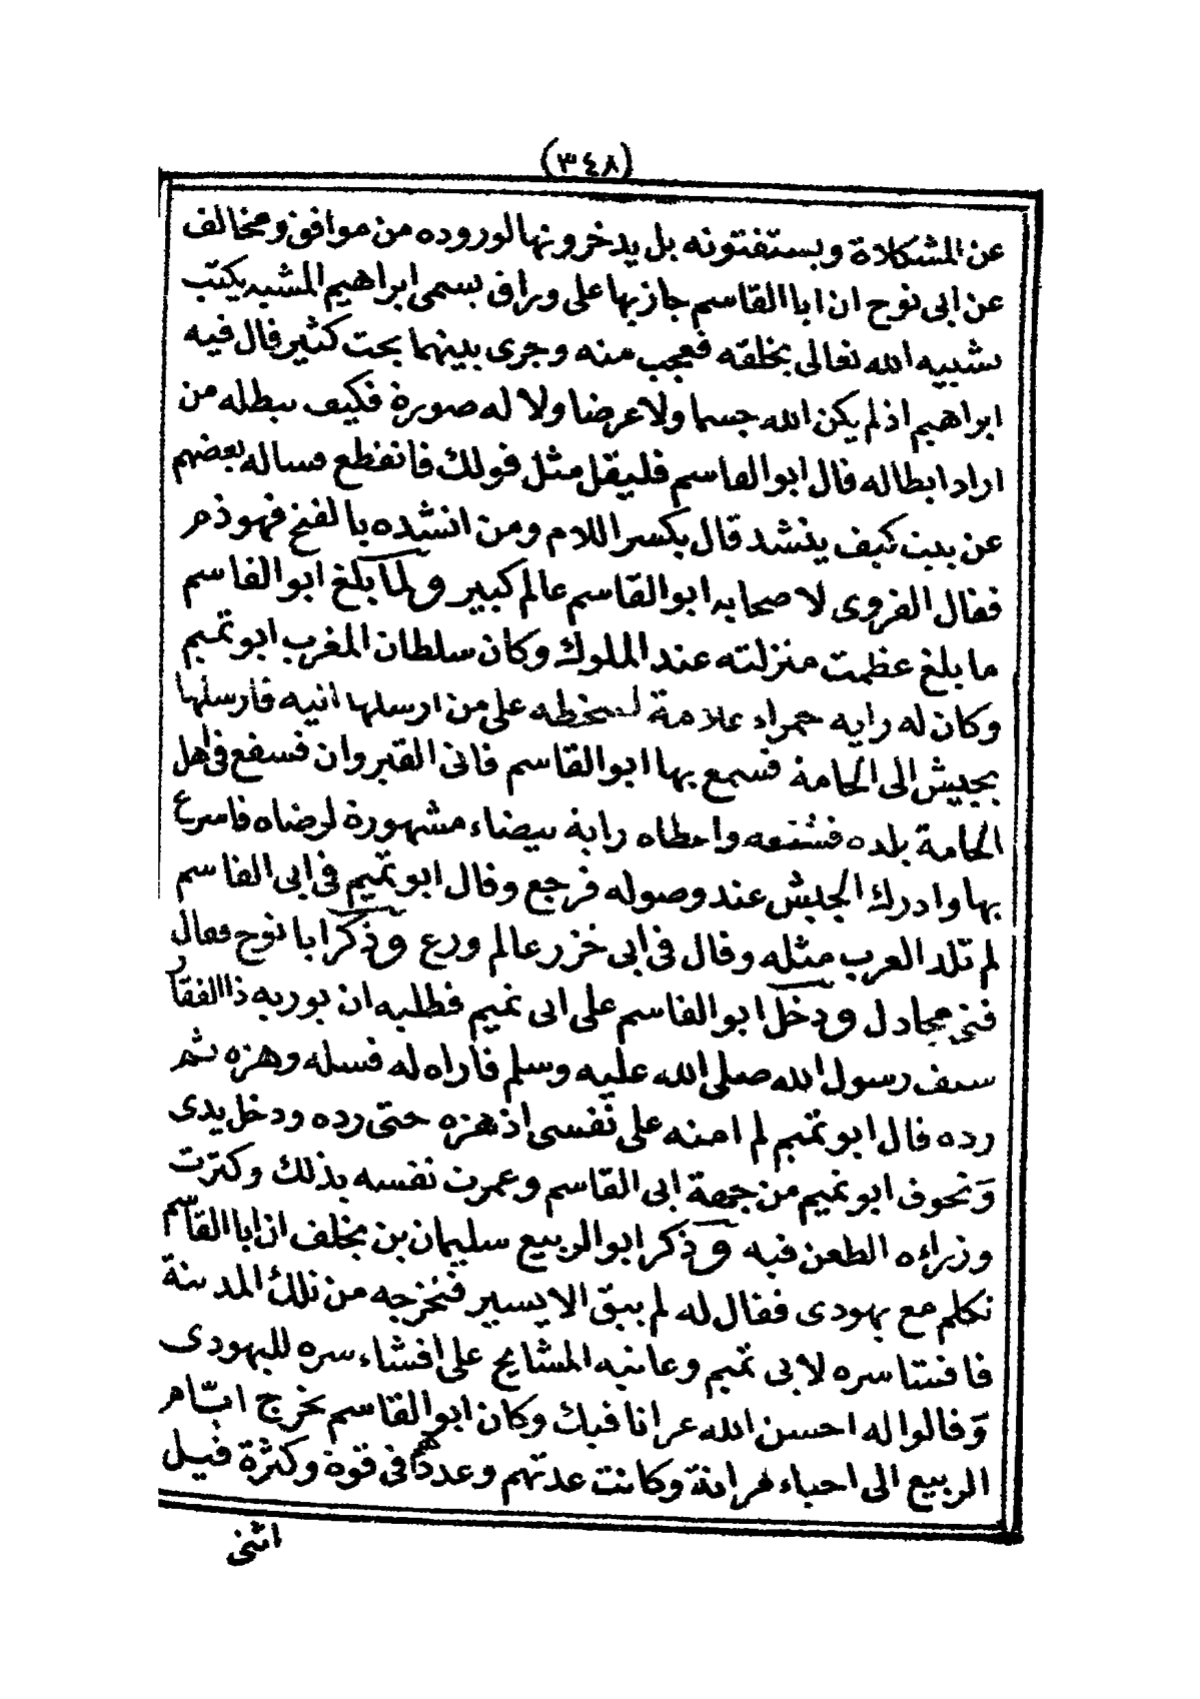 (٣٤٨)
عن المشكلاة ويستفتونه بل يدخرونها لوروده من موافق ومخالف
عن ابى نوح ان ابا القاسم جاز بها على وراق يسمى ابراهيم المشبه يكتب
تشبيه الله تعالى بخلقه فعجب منه وجرى بينهما بحث كثير قال فيه
ابراهيم اذ لم يكن الله جسما ولا عرضا ولا له صورة فكيف يبطله من
اراد ابطاله قال ابو القاسم فليقل مثل قولك فانقطع فساله بعضهم
عن بيت كيف ينشد قال بكسر اللام ومن انشده بالفتح فهو ذم
فقال القروى لاصحابه ابو القاسم عالم كبير ولما بلغ ابو القاسم
ما بلغ عظمت منزلته عند الملوك وكان سلطان المغرب ابو تميم
وكان له راية حمراء علامة لسخطه على من ارسلها اليه فارسلها
بجيش الى الحامة فسمع بها ابو القاسم فاتى القيروان فشفع فى اهل
الحامة بلده فشفعه واعطاه راية بيضاء مشهورة لرضاه فاسرع
بها وادرك الجيش عند وصوله فرجع وقال ابو تميم فى ابى القاسم
لم تلد العرب مثله وقال فى ابى خزر عالم ورع وذكر ابا نوح فقال
فتى مجادل ودخل ابو القاسم على ابى تميم فطلبه ان يوريه ذا الفقار
سيف رسول الله صلى الله عليه وسلم فاراه له فسله وهزه ثم
رده قال ابو تميم لم امنه على نفسى اذ هزه حتى رده ودخل يدى
وتخوف ابو تميم من جهة ابى القاسم وعمرت نفسه بذلك وكثرت
وزراءه الطعن فيه وذكر ابو الربيع سليمان بن يخلف ان ابا القاسم
تكلم مع يهودى فقال له لم يبق الا يسير فنخرجه من تلك المدينة
فافشا سره لابى تميم وعاتبه المشايخ على افشاء سره لليهودى
وقالوا له احسن الله عزانا فيك وكان ابو القاسم يخرج ايام
الربيع الى احياء مزاتة وكانت عدتهم وعددهم فى قوة وكثرة قيل
اثنى